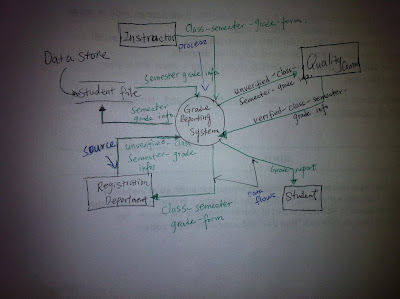 Instructor
Class-semester-grade-form.
process
Data Store
Student file
Semester grade info
Quality
unverified-class-
Semester-grade info
verified-class-semester-
grade info
Semester
grade info
Grade
Reporting
System
source
unverified-class
semester-grade
info
Registration
Department
Class-semester
grade-form
Grade-report
Data
flows
Student